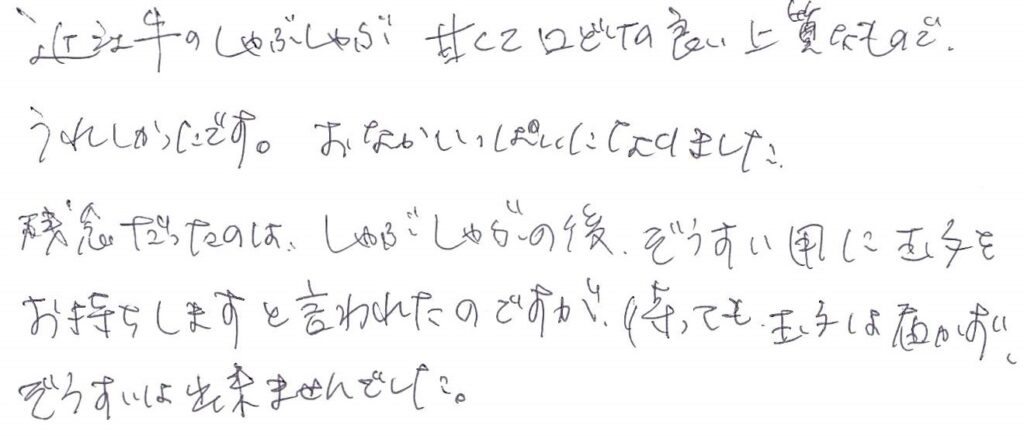 近江牛のしゃぶしゃぶ 甘くて口どけの良い上質なもので、
うれしかったです。おなかいっぱいになりました。
残念だったのは、しゃぶしゃぶの後、ぞうすい用に玉子を
お持ちしますと言われたのですが、待っても玉子は届かず、
ぞうすいは出来ませんでした。